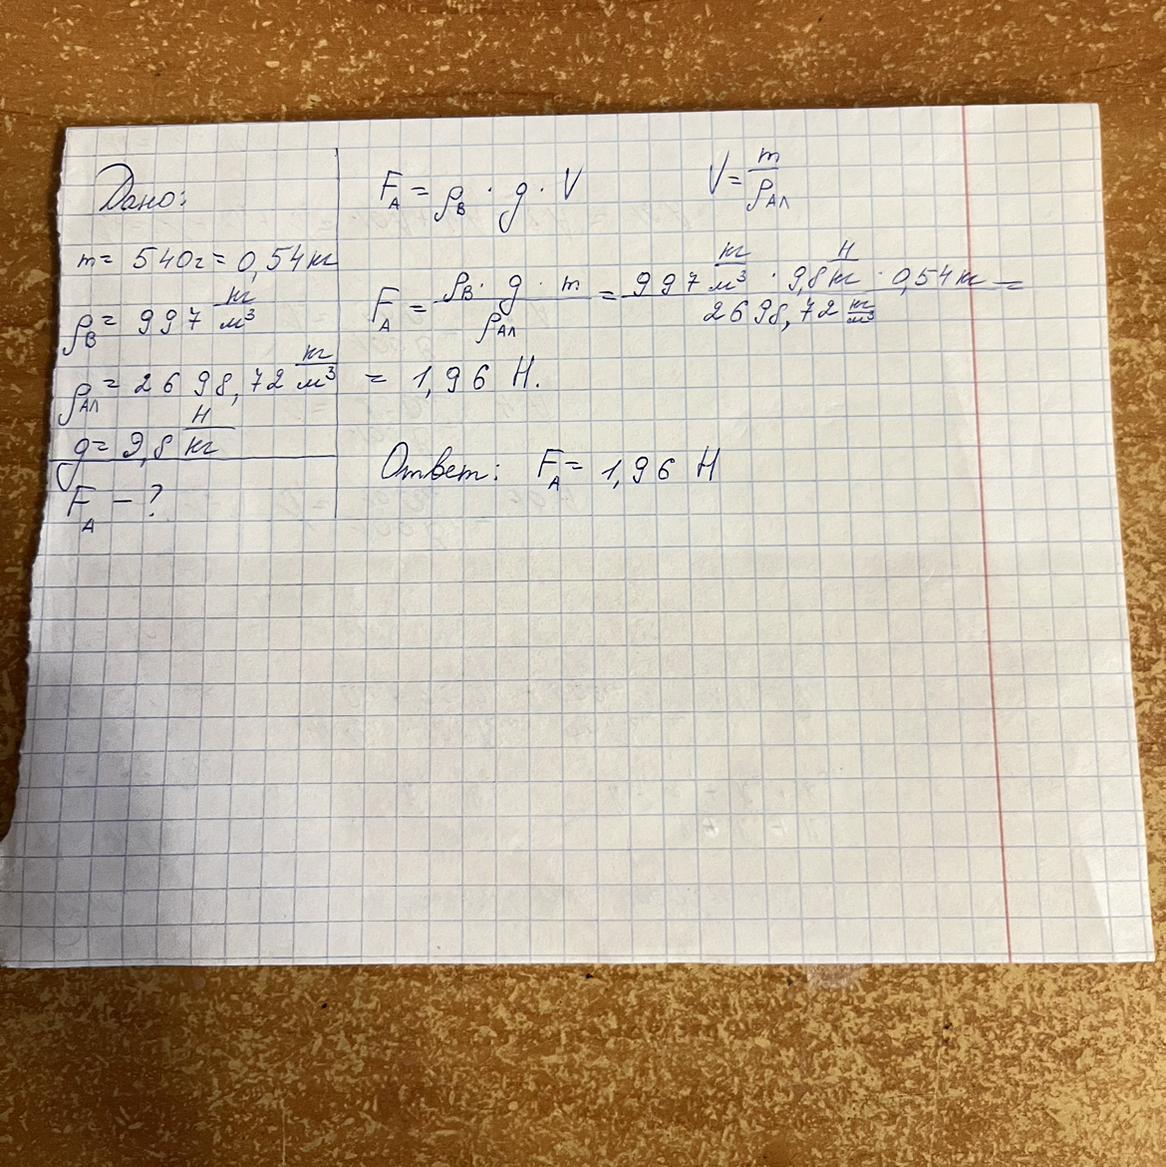 Дано:
m = 540г = 0,54кг
ρ_В = 997 кг/м³
ρ_Ал = 2698,72 кг/м³
g = 9,8 Н/кг
F_А - ?
F_А = ρ_В · g · V
V = m/ρ_Ал
F_А = ρ_В · g · m / ρ_Ал = 997 кг/м³ · 9,8 Н/кг · 0,54кг / 2698,72 кг/м³ =
= 1,96 Н.
Ответ: F_А = 1,96 Н